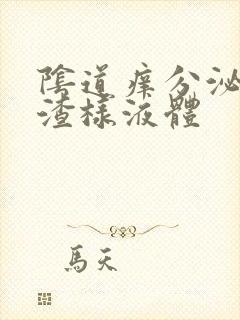 陰道痒分泌
渣樣液體
馬天